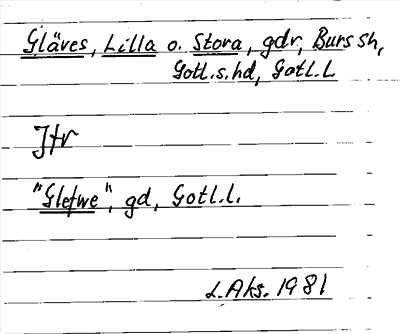 Gläves, Lilla o. Stora, gdr, Burs sn,
Gotl. s. hd, Gotl. l.
Jfr
"Glefwe", gd, Gotl. l.
L. Aks. 1981